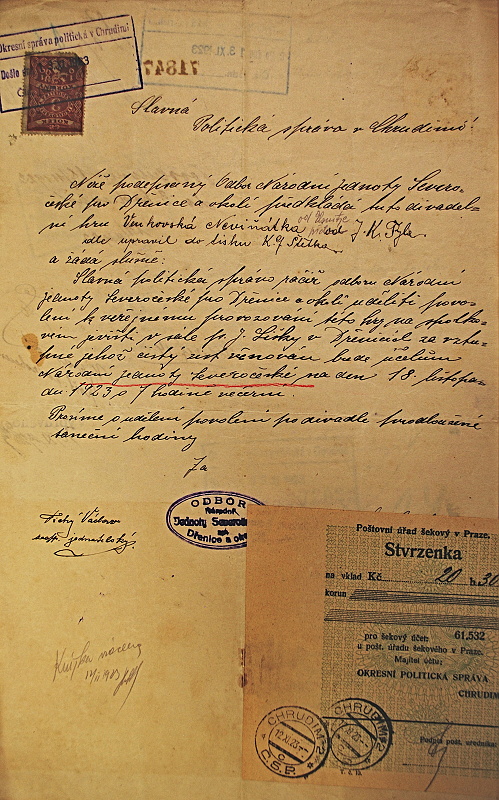 Okresní správa politická v Chrudimi
Došlo
3. XI. 1923
71847
Slavná
Politická správo v Chrudimi!
Níže podepsaný Odbor Národní jednoty Severo-
české pro Dřenice a okolí předkládá tuto divadel-
ní hru Venkovská Nevinátka od J. K. Tyla
dle upravil do tisku K. Štětka
a žádá slušně:
Slavná politická správo račiž odboru Národní
jednoty Severočeské pro Dřenice a okolí uděliti povo-
lení k veřejnému provozování této hry na spolko-
vém jevišti v sále p. J. Lisky v Dřenicích za vstu-
pné jehož čistý věnován bude účelům
Národní jednoty Severočeské na den 18. listopa-
du 1923 o 7 hodině večerní.
Prosíme o udělení povolení po divadle prodloužené
taneční hodiny
Za
ODBOR
Národní
Jednoty Severočes
pro
Dřenice a oko
Tichý Václav
jednatelský.
Poštovní úřad šekový v Praze.
Stvrzenka
na vklad Kč 20 h 30
korun
pro šekový účet: 61.532
u pošt. úřadu šekového v Praze.
Majitel účtu:
OKRESNÍ POLITICKÁ SPRÁVA
CHRUDIM
CHRUDIM 2
12.XI.23
C
Č.S.P.
CHRUDIM 2
Podpis pošt. úředníka: